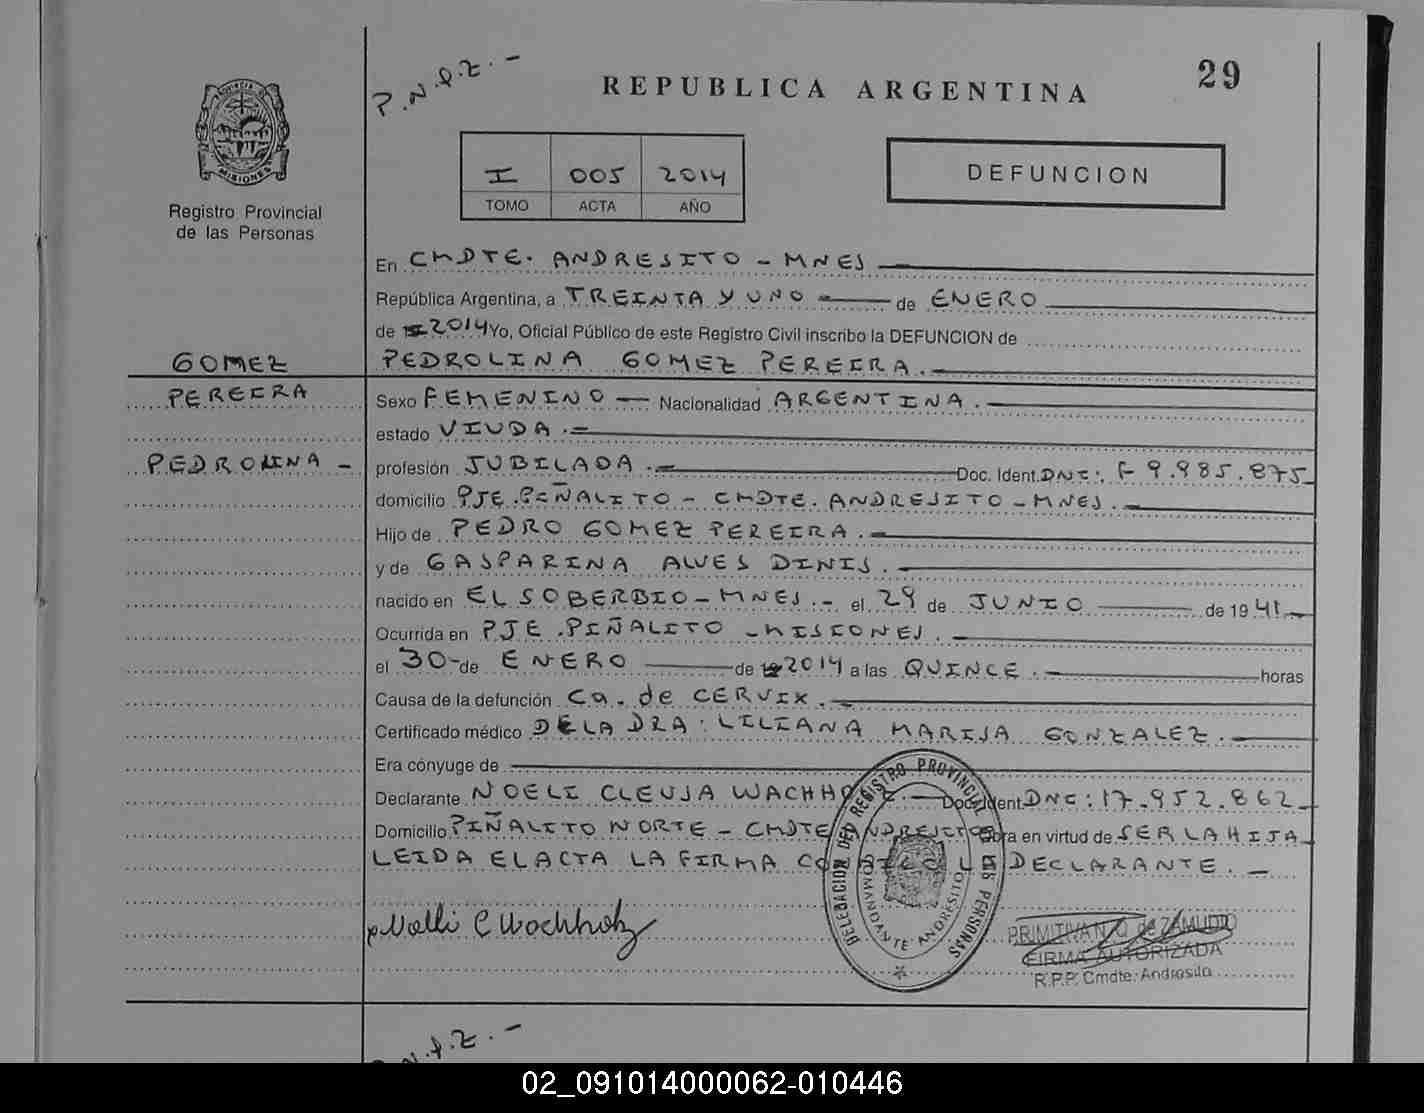 P.N.P.Z.-
REPUBLICA ARGENTINA
29
PROVINCIA DE
MISIONES
Registro Provincial
de las Personas
I 005 2014
TOMO ACTA AÑO
DEFUNCION
En CMDTE. ANDRESITO - MNES
República Argentina, a TREINTA Y UNO de ENERO
de 2014 Yo, Oficial Público de este Registro Civil inscribo la DEFUNCION de
GOMEZ
PEREIRA
PEDROLINA -
PEDROLINA GOMEZ PEREIRA.
Sexo FEMENINO Nacionalidad ARGENTINA.
estado VIUDA.
profesión JUBILADA. Doc. Ident. DNI: F 9.985.875
domicilio PJE. PIÑALITO - CMDTE. ANDRESITO - MNES.
Hijo de PEDRO GOMEZ PEREIRA.
y de GASPARINA ALVES DINIS.
nacido en EL SOBERBIO - MNES.- el 29 de JUNIO de 1941
Ocurrida en PJE. PIÑALITO - MISIONES.
el 30 de ENERO de 2014 a las QUINCE. horas
Causa de la defunción Ca. de CERVIX.
Certificado médico DE LA DRA: LILIANA MARISA GONZALEZ.
Era cónyuge de
Declarante NOELI CLEUSA WACHHOLZ Doc. Ident. DNI: 17.952.862
Domicilio PIÑALITO NORTE - CMDTE ANDRESITO Obra en virtud de SER LA HIJA
LEIDA EL ACTA LA FIRMA CONMIGO LA DECLARANTE.
DELEGACION DEL REGISTRO PROVINCIAL DE LAS PERSONAS
COMANDANTE ANDRESITO
C Wachholz
PRIMITIVA de ZAMUDIO
FIRMA AUTORIZADA
R.P.P. Cmdte. Andresito
N.P.Z.-
02_091014000062-010446